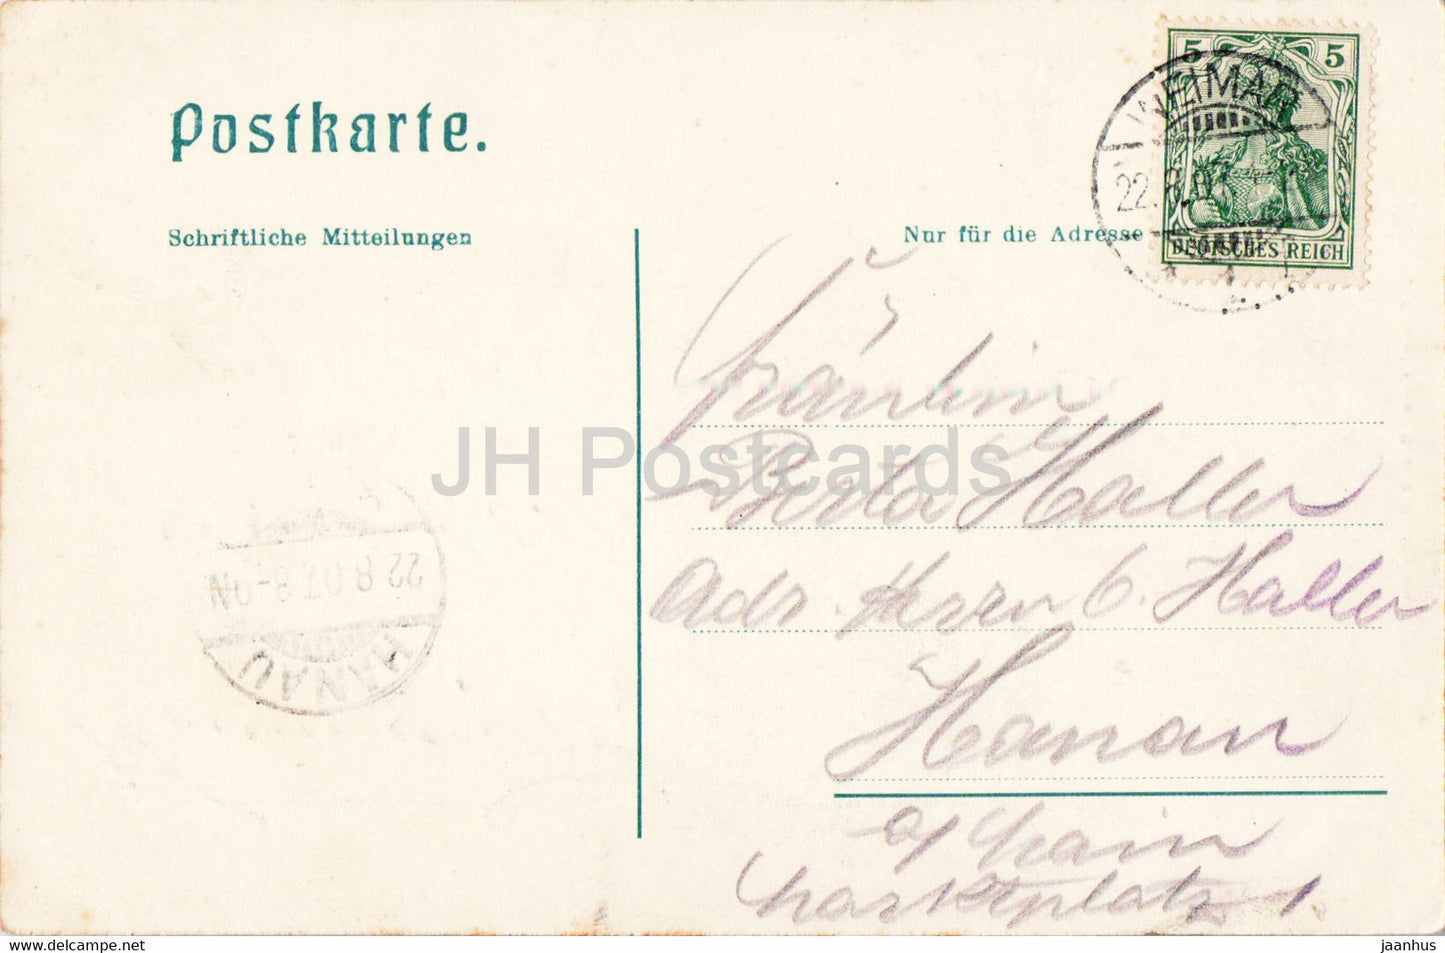 Postkarte.
Schriftliche Mitteilungen
Nur für die Adresse
5 5
DEUTSCHES REICH
WEIMAR
22.8.07.
Fräulein
Berta Haller
Adr. Herrn C. Haller
Hanau
a/Main
Marktplatz 1.
22.8.07.8-9N
HANAU
JH Postcards
jaanhus